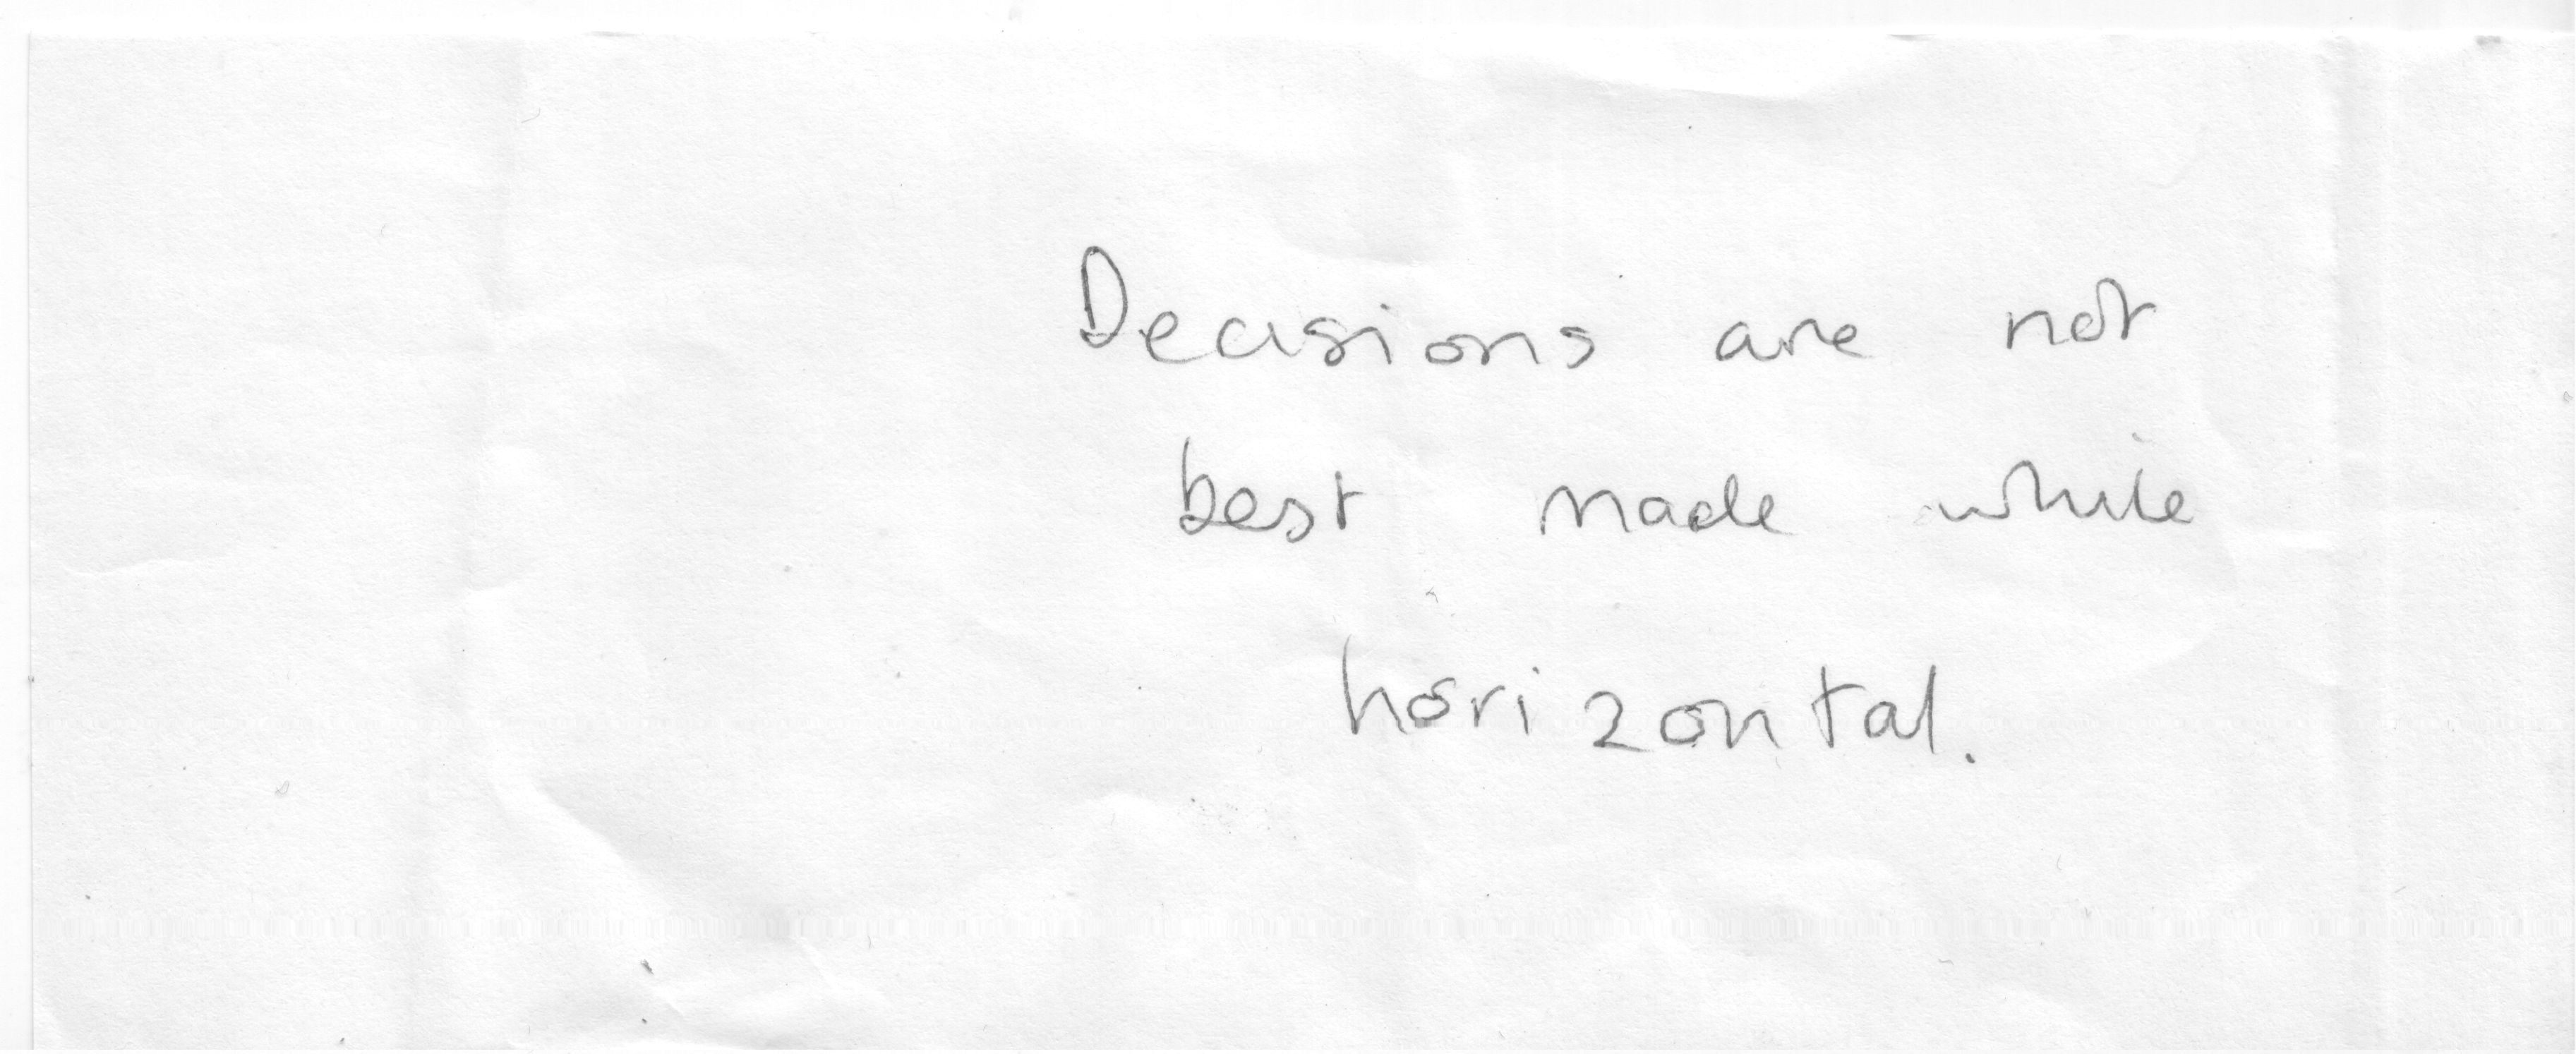 Decisions are not
best made while
horizontal.